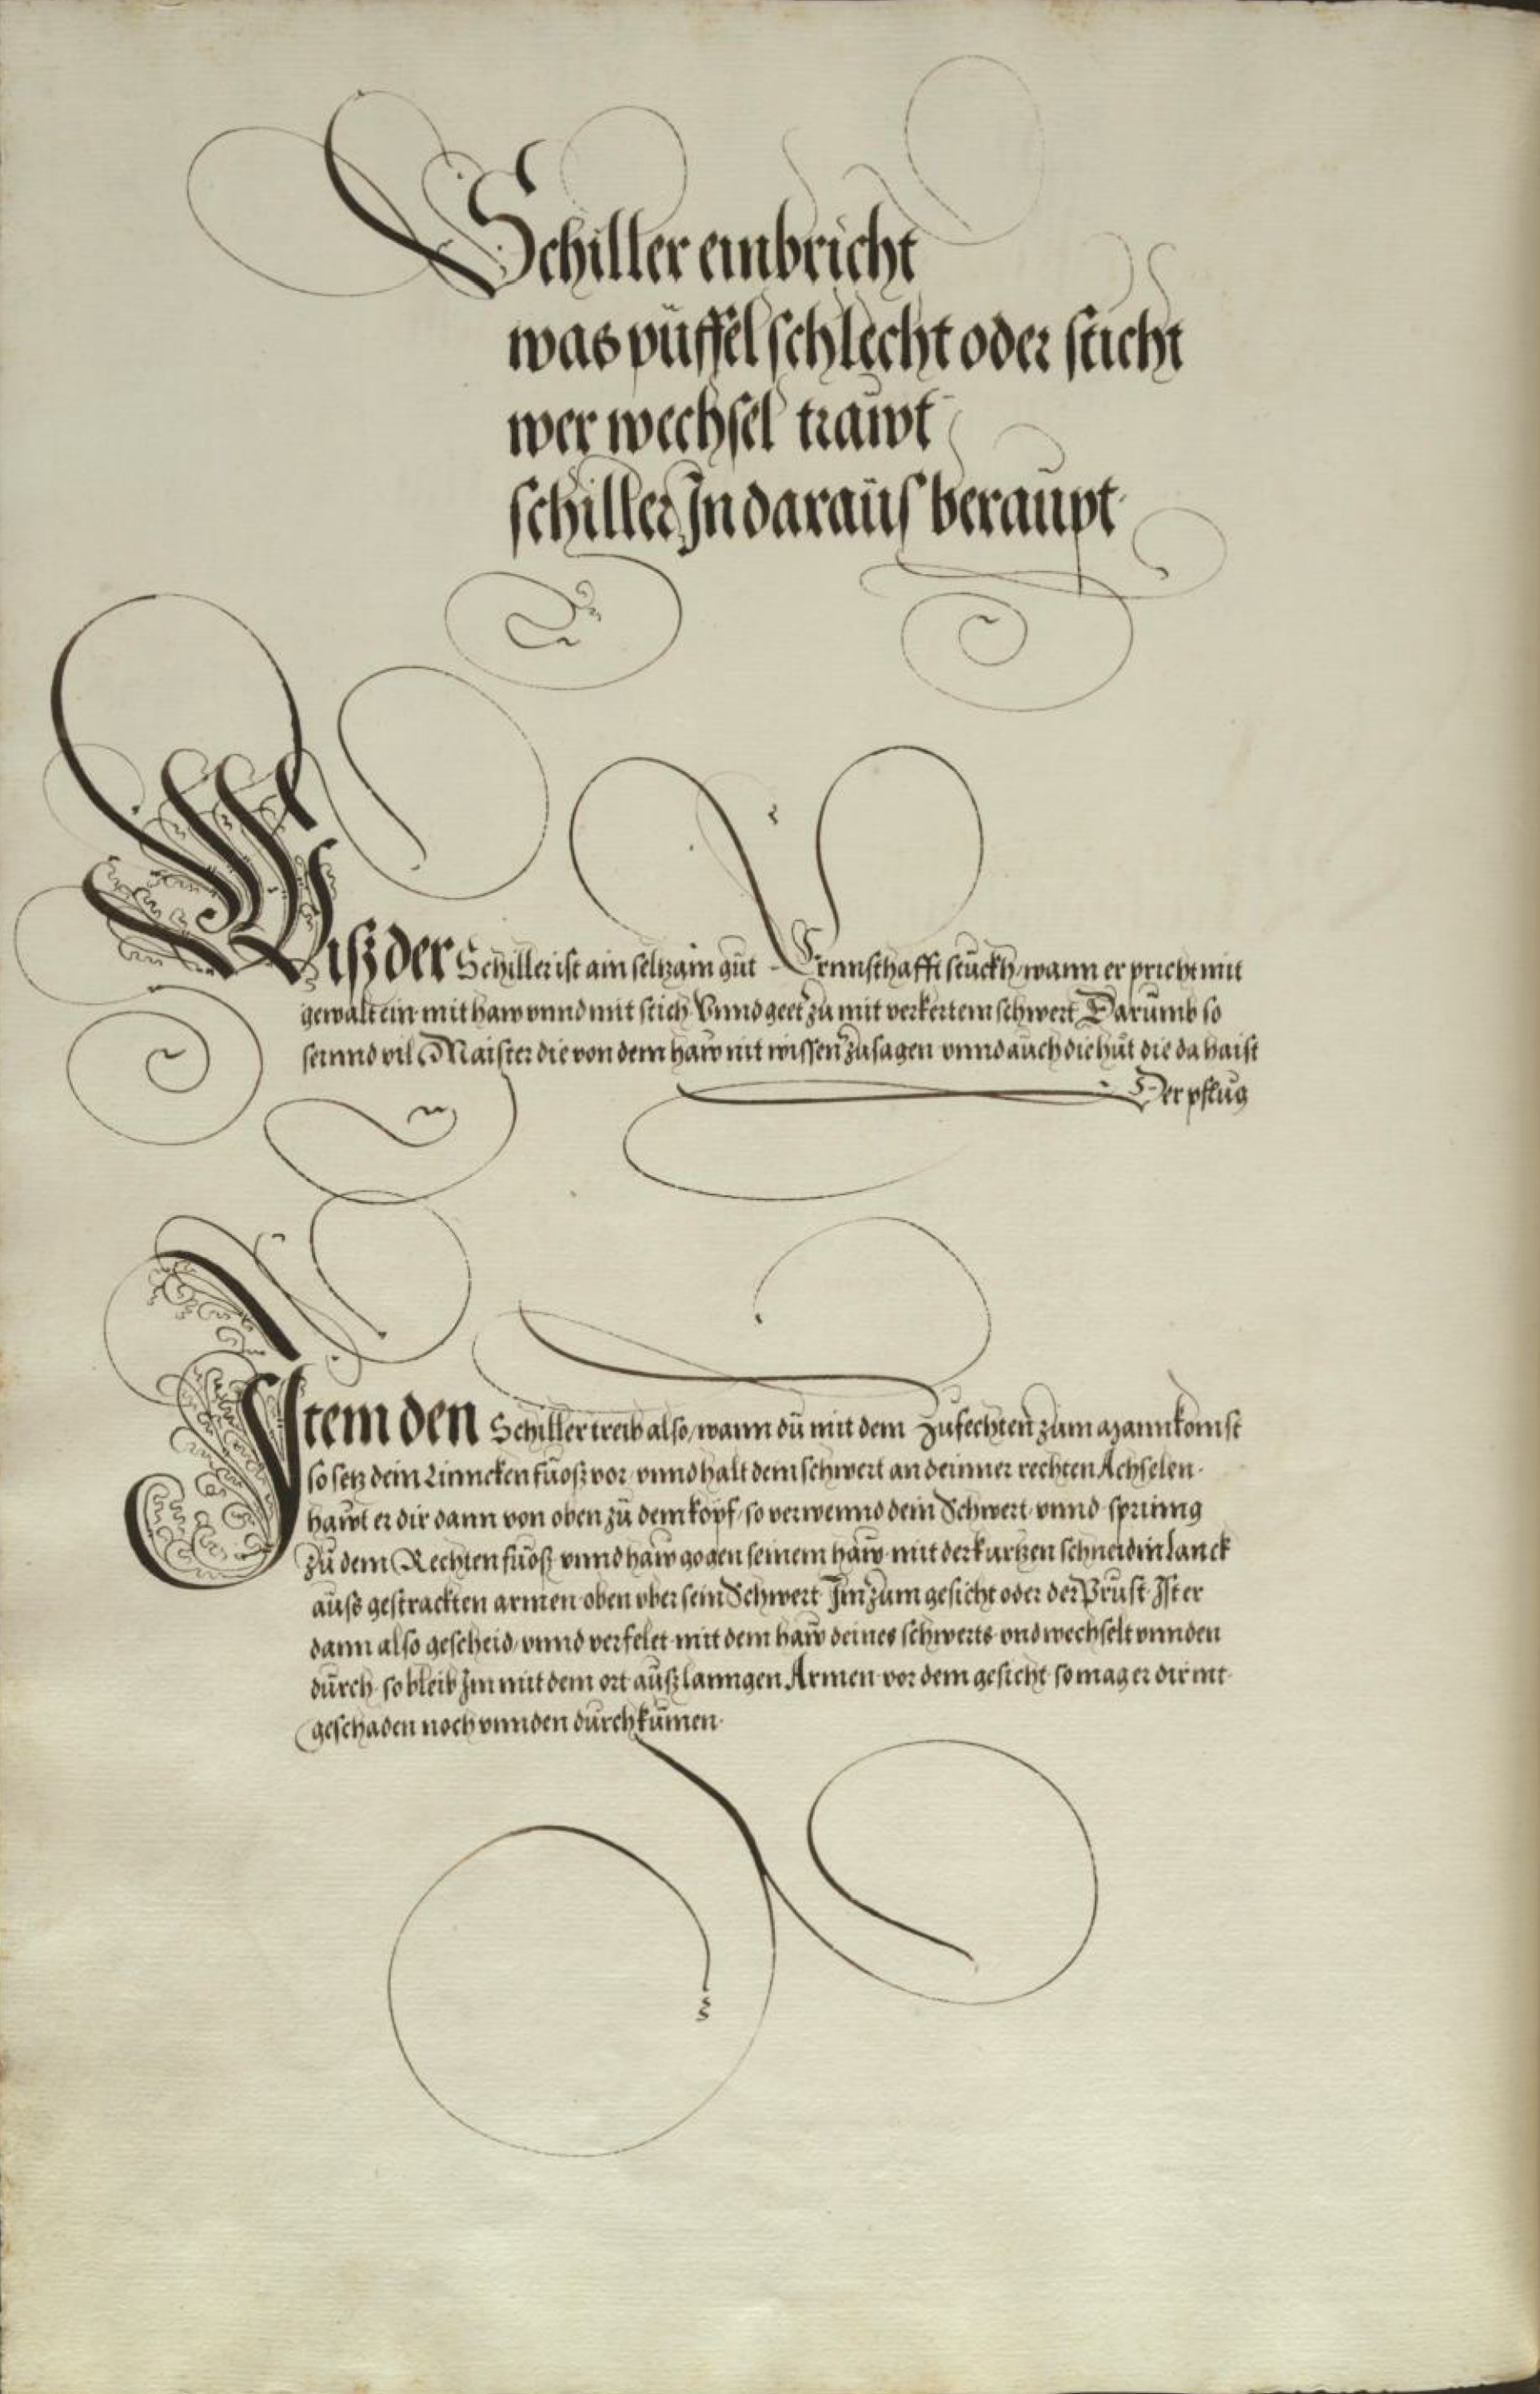 Schiller einbricht
was püffel schlecht oder sticht
wer wechsel trawt
schiller In daraüs beraupt
Wiß der Schiller ist ain seltzam güt Ernnsthafft stückh, wann er pricht mit
gewalt ein mit haw vnnd mit stich Vnnd geet zu mit verkertem schwert Darumb so
seinnd vil Maister die von dem haw nit wissen zu sagen vnnd auch die hůt die da haist
Der pflüg
Item den Schiller treib also, wann dü mit dem zufechten zum mann komst
so setz dein Linncken füosz vor, vnnd halt dein schwert an deinner rechten Achselen.
hawt er dir dann von oben zü dem kopf, so verwennd dein Schwert vnnd sprinng
zu dem Rechten füoß vnnd haw gogen seinem haw mit der kurtzen schneid in lanck
auss gestrackten armen oben vber sein Schwert Im zum gesicht oder der Prust Ist er
dann also gescheid, vnnd verfelet mit dem haw deines schwerts vnd wechselt vnnden
dürch so bleib Im mit dem ort auß lanngen Armen vor dem gesicht so mag er dir nit
geschaden noch vnnden dürch kümen.